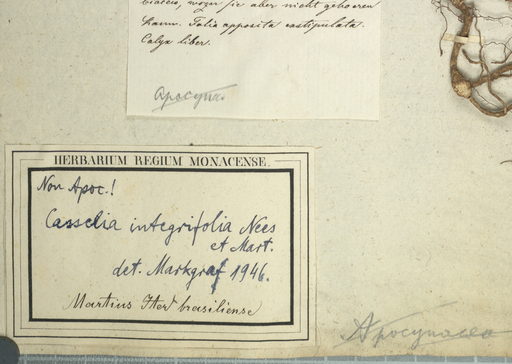 wozu sie aber nicht gehoeren
kann. Folia opposita exstipulata.
Calyx liber.
Apocyn.
HERBARIUM REGIUM MONACENSE.
Non Apoc.!
Casselia integrifolia Nees
et Mart.
det. Markgraf 1946.
Martius Iter brasiliense
Apocynacea